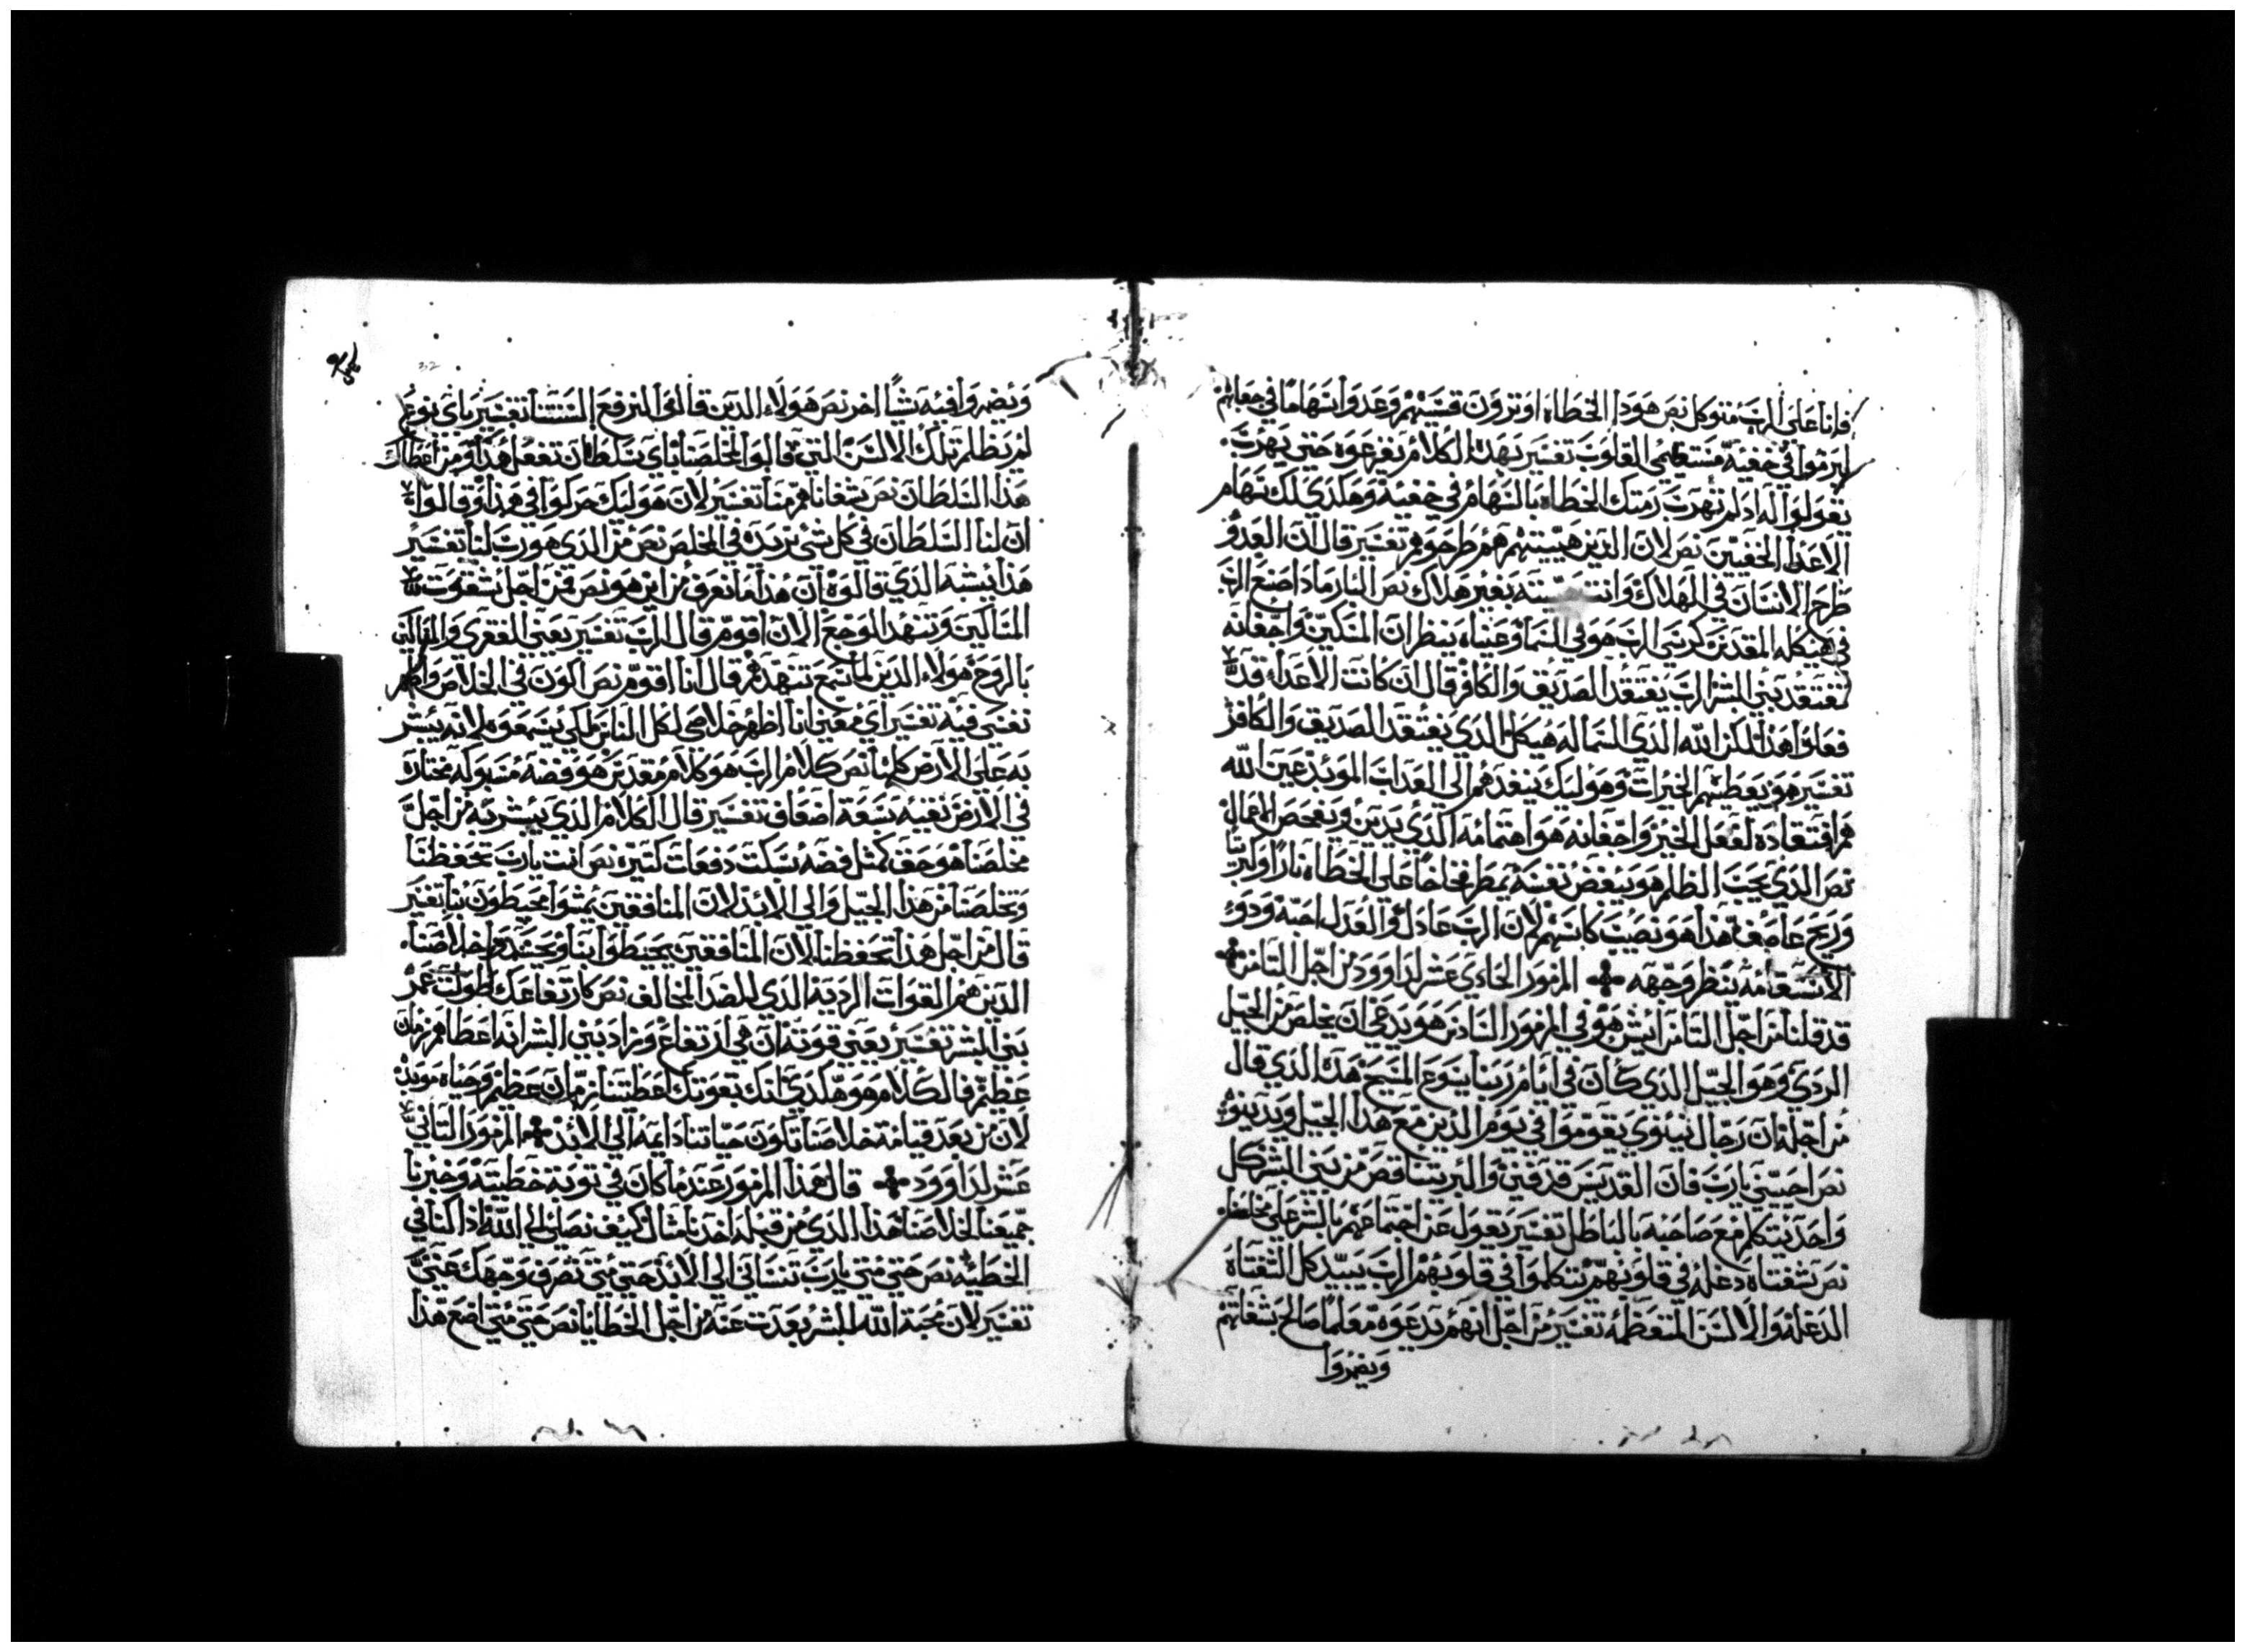 فانا على الرب متوكل نص هودا الخطاه اوتروون قسيهم وعدوا سهاما في جعابهم
ليرموا في خفيه مستقيمي القلوب تفسير بهده الكلام يفزعوه حتى يهرب
يقولوا له اد لم تهرب رمتك الخطاه بالسهام في خفية وهكدي لك سهام
الاعدا الخفيين نص لان الدين هييتهم هم طرحوهم تفسير قال ان العدو
طرح الانسان في الهلاك وانت هيينه بغير هلاك نص البار مادا صنع الرب
في هيكله المقدس كرسي الرب هو في السما وعيناه ينظران المسكين واجفانه
تفتقد بني البشر الرب يفتقد الصديق والكافر قال ان كانت الاعدا قد
فعلوا هدا لكن الله الدي السما له هيكل الدي يفتقد الصديق والكافر
تفسير هو يعطيهم الخيرات وهوليك ينفدهم الى العداب الموبد عين الله
هم افتقاده لفعل الخير واجفانه هو اهتمامه الدي يدين ويفحص الاعمال
نص الدي يحب الظلم هو يبغض نفسه يمطر فخاخا على الخطاه نارا وكبريتا
وريح عاصف هدا هو نصيب كاسهم لان الرب عادل والعدل احبه ودو
الاستقامه ينظر وجهه المزمور الحادي عشر لداوود من اجل التامن
قد قلنا من اجل التامن ايش هو في المزمور السادس هو يدعي ان يخلص من الجيل
الردي وهو الجيل الدي كان في ايام ربنا يسوع المسيح هدا الدي قال
من اجله ان رجال نينوي يقوموا في يوم الدين مع هدا الجيل ويدينوه
نص احييني يارب فان القديس قد فني والبر تناقص من بني البشر كل
واحد يتكلم مع صاحبه بالباطل تفسير يقول عن اجتماعهم بالشر على مخلصنا
نص شفتاه دغله في قلوبهم يتكلموا في قلوبهم الرب يبيد كل الشفتاه
الدغله والالسن المتعظمه تفسير من اجل انهم يدعوه معلما صالح بشفاتهم
ويضمروا
ويضمروا فيه شيا اخر نص هولاء الدين قالوا نحن نرفع السنتنا تفسير باي نوع
لم يظلم تلك الالسن التي قالوا لمخلصنا باي سلطان تفعل هدا ومن اعطاك
هدا السلطان نص شفاتنا هم منا تفسير لان هوليك حركوا في هدا وقالوا
ان لنا السلطان في كل شي نريده في المخلص نص من الدي هو رب لنا تفسير
هدا يشبه الدي قالوه ان هدا ما نعرف من اين هو نص فمن اجل شقوت
المساكين وتنهد الموجع الان اقوم قال الرب تفسير يعني الفقرى والمساكين
بالروح هولاء الدين لما سمع تنهدهم قال انا اقوم نص اكون في الخلاص واظهر
نفسي فيه تفسير اي معني انا اظهر خلاصي لكل الناس لكي يسمعوه لانه يبشر
به على الارض كلها نص كلام الرب هو كلام مقدس هو فضه مسبوكه مختاره
في الارض نقيه سبعة اضعاف تفسير قال الكلام الدي يبشر به من اجل
مخلصنا هو حق كمثل فضه سبكت دفعات كتيره نص انت يارب تحفظنا
وتخلصنا من هدا الجيل والى الابد لان المنافقين يمشوا محيطون بنا تفسير
قال من اجل هدا تحفظنا لان المنافقين يحيطوا بنا ويحسدوا خلاصنا
الدين هم القوات الرديه الدي للضد المخالف نص كارتفاعك طولت عمر
بني البشر تفسير يعني قوته ان هي ارتفاع وزاد بني البشر انه اعطاهم زمان
عظيم فالكلام هو هكدي انك بقوتك اعطتنا زمان عظيم وحياه موبده
لان من بعد قيامة خلاصنا تكون حياتنا دايمه الى الابد المزمور التاني
عشر لداوود قال هدا المزمور عندما كان في توبة خطيته وخبرنا
جميعنا لخلاصنا هدا الدي من قبله اخدنا متال كيف نصلي الي الله ادا كنا في
الخطيه نص حتى متى يارب تنساني الي الابد حتى متى تصرف وجهك عني
تفسير لان محبة الله للبشر بعدت عنه من اجل الخطايا نص حتى متى اضع هدا